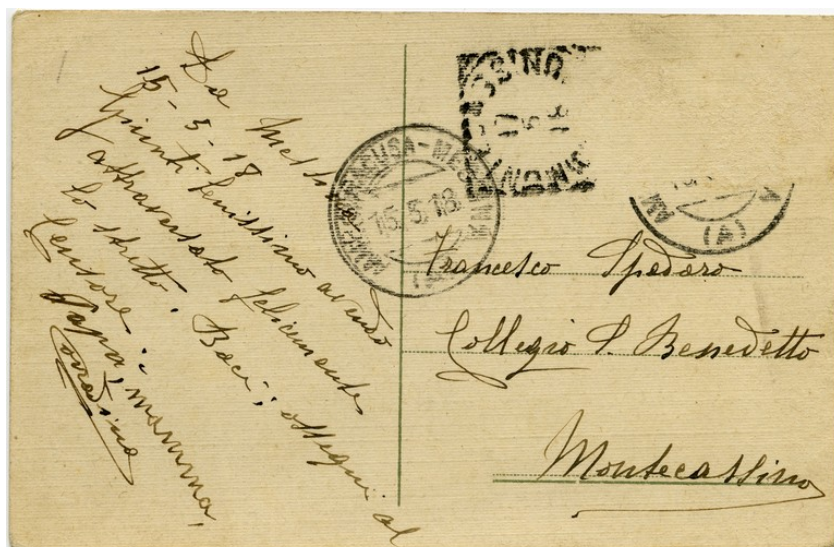 Da Messina
15-5-18
Giunti benissimo avendo
attraversato felicemente
lo stretto. Baci; ossequi al
Censore.
Papà, mamma,
Corradino
SIRACUSA-MES
15.5.18
(A)
Francesco Spadaro
Collegio S. Benedetto
Montecassino